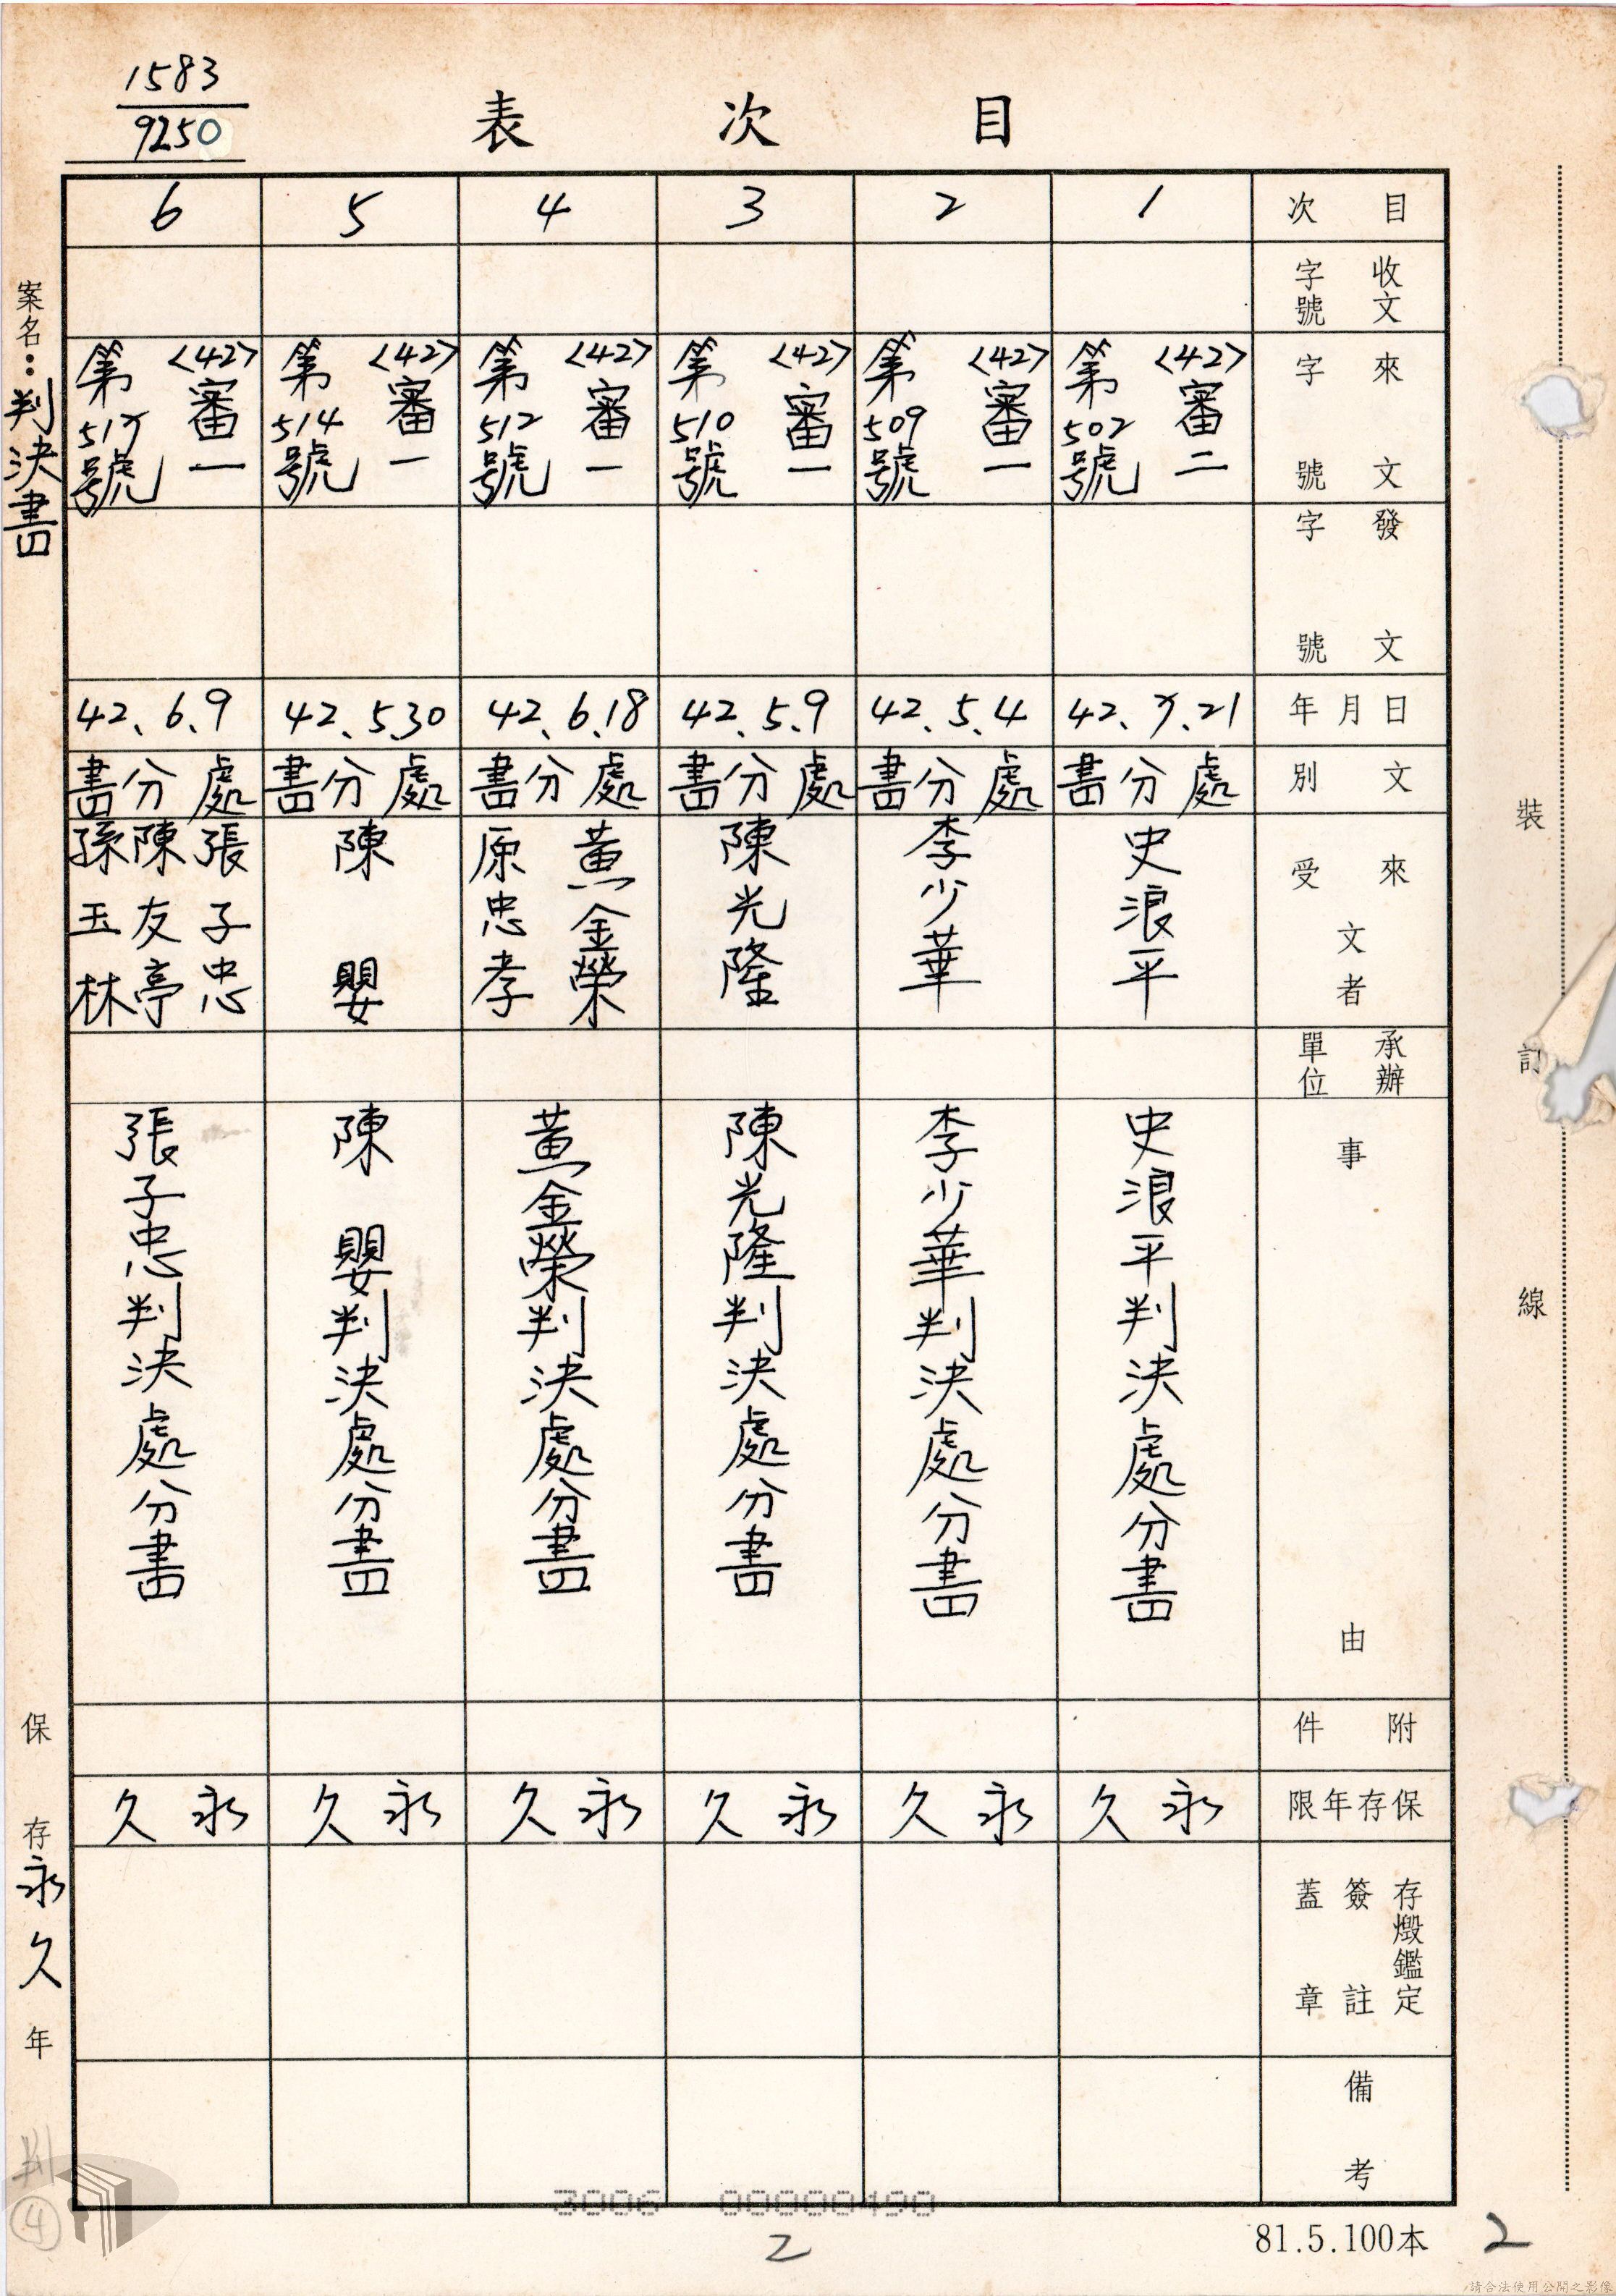 1583
9250
目次表
案名：判決書
保存永久年
目次
收文字號
來文字號
發文字號
年月日
文別
來受文者
承辦單位
事由
附件
保存年限
存燬鑑定簽註蓋章
備考
1
〈42〉審二第502號
42、7、21
處分書
史浪平
史浪平判決處分書
永久
2
〈42〉審一第509號
42、5、4
處分書
李少華
李少華判決處分書
永久
3
〈42〉審一第510號
42、5、9
處分書
陳光隆
陳光隆判決處分書
永久
4
〈42〉審一第512號
42、6、18
處分書
黃金榮
原忠孝
黃金榮判決處分書
永久
5
〈42〉審一第514號
42、5、30
處分書
陳嬰
陳嬰判決處分書
永久
6
〈42〉審一第517號
42、6、9
處分書
張子忠
陳友亭
孫玉林
張子忠判決處分書
永久
裝訂線
判
④
2
81.5.100本
2
請合法使用公開之影像